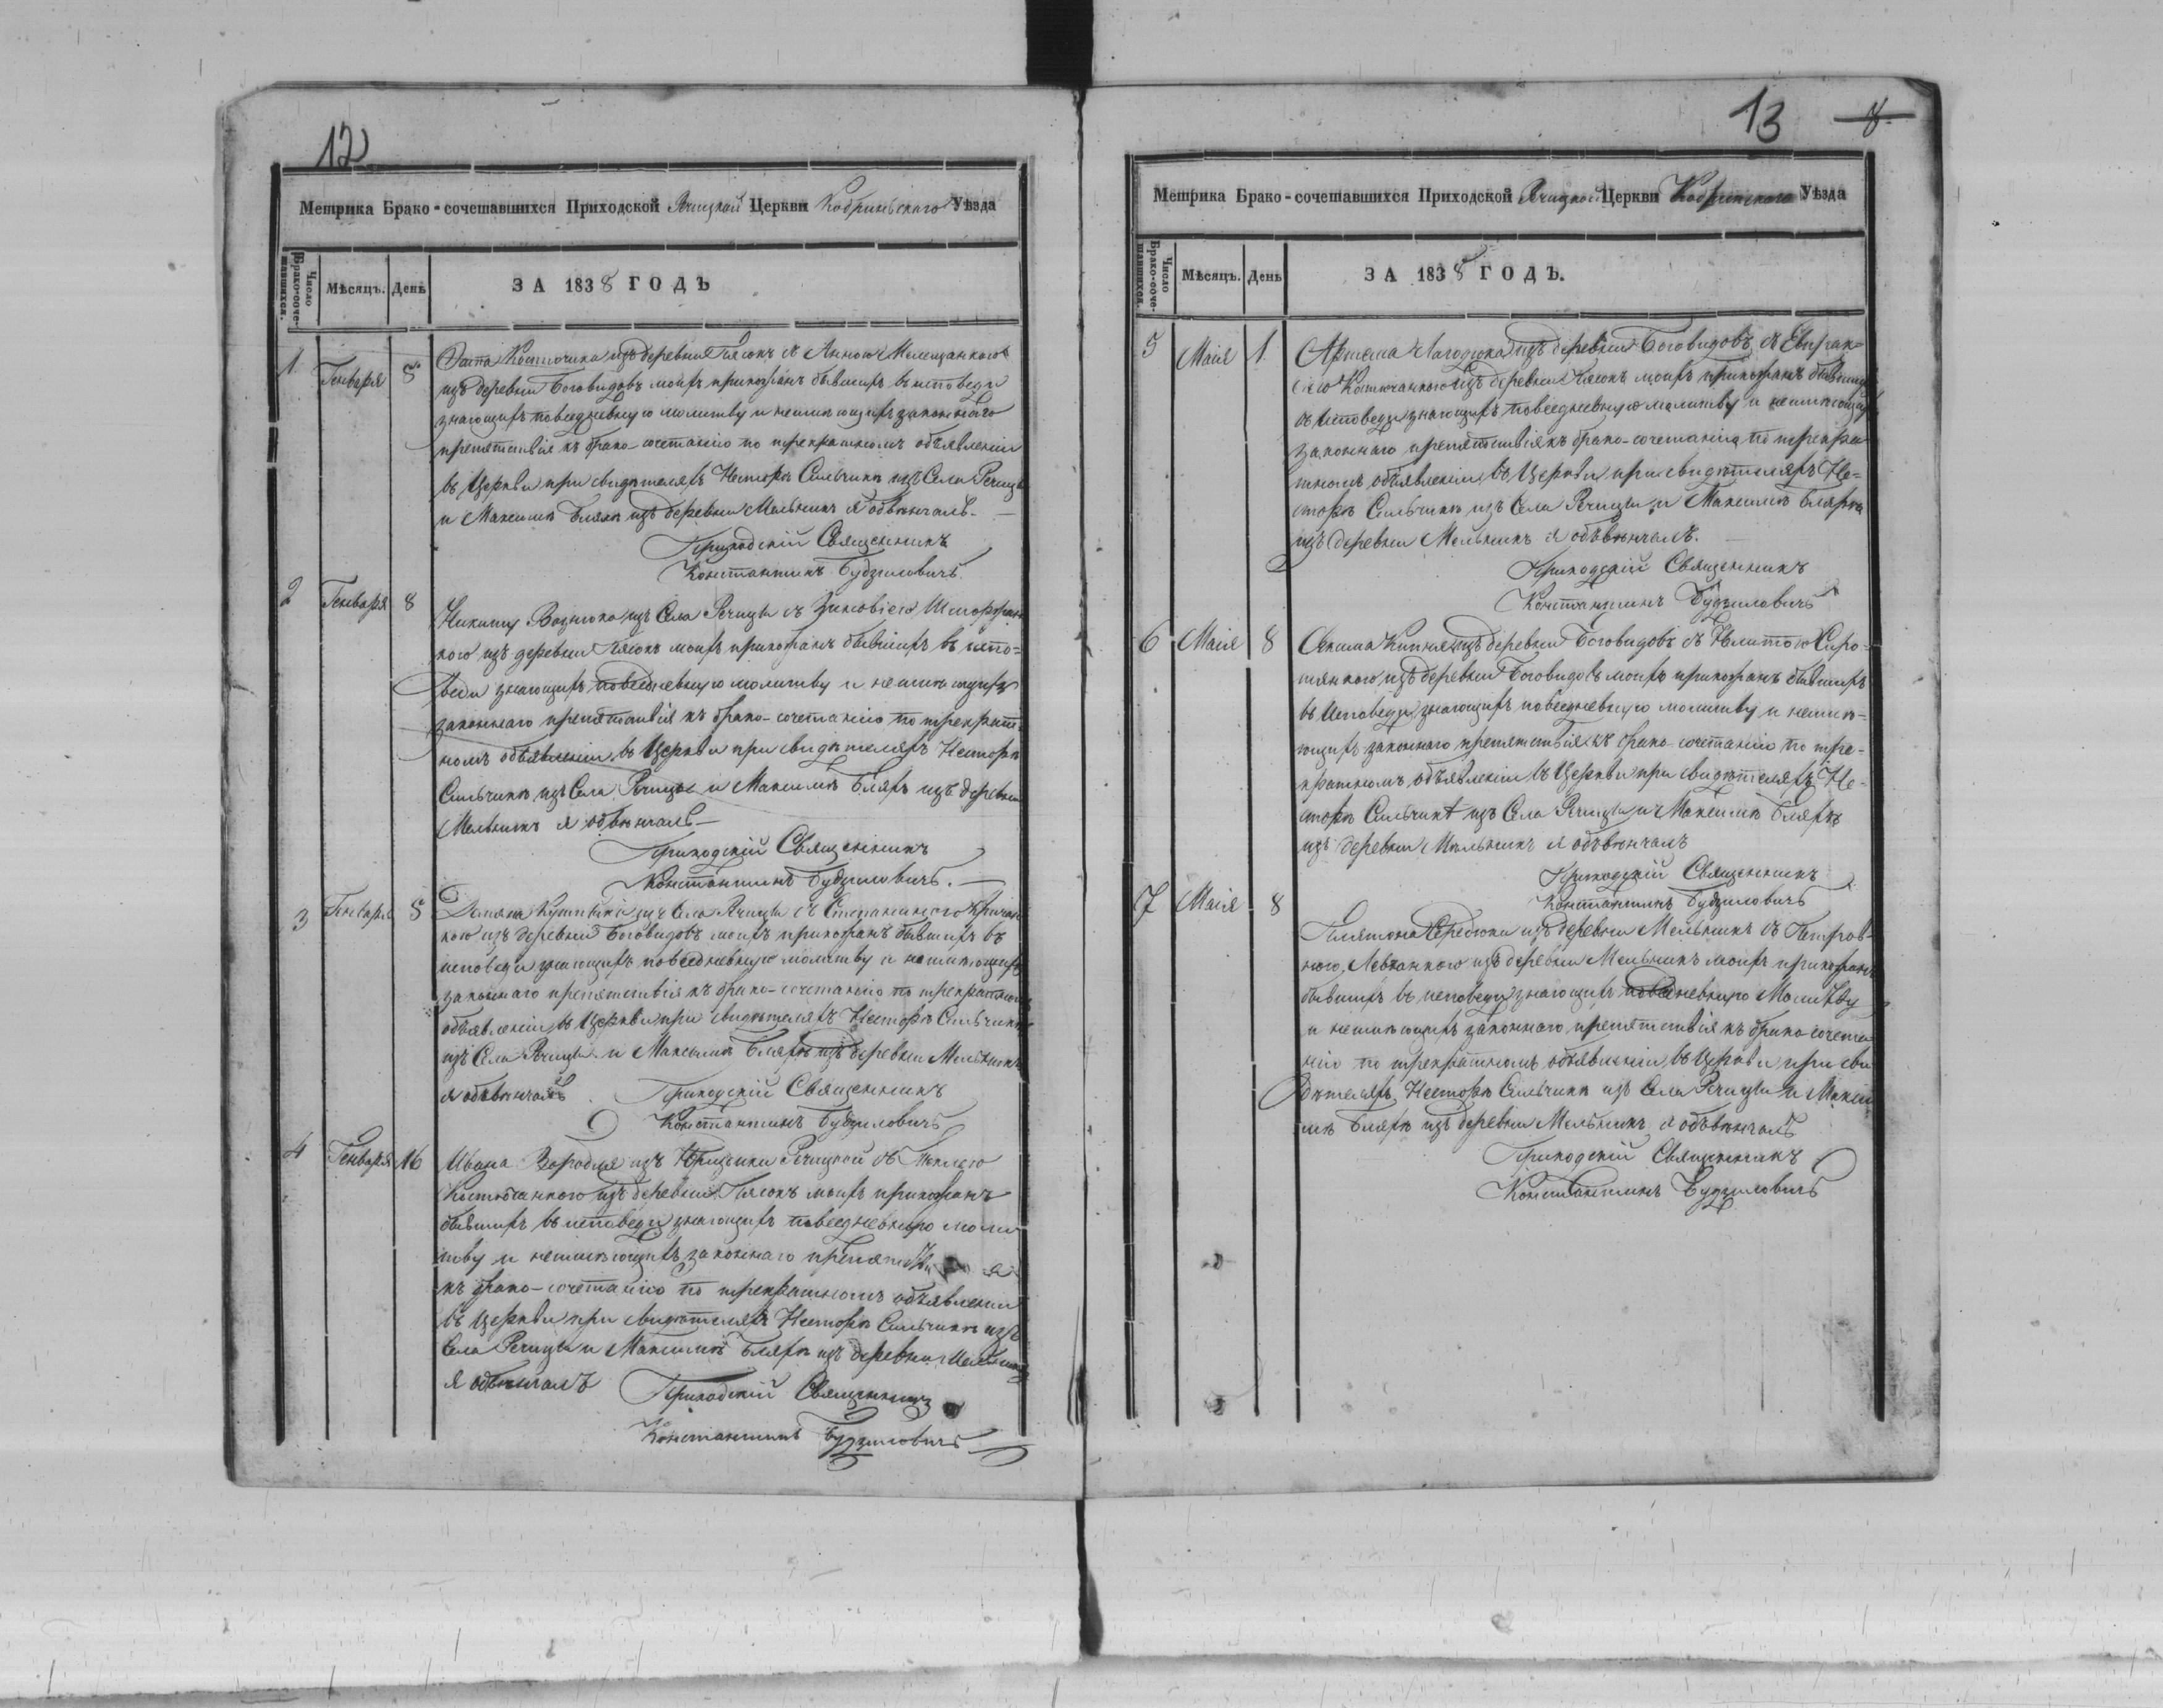 12
Метрика Брако-сочетавшихся Приходской Речицкой Церкви Кобринскаго Уѣзда
Число Брако-сочетавшихся.
Мѣсяцъ.
День
ЗА 1838 ГОДЪ
1 Генваря 8
изъ деревни Боговидовъ моихъ прихожанъ бывшихъ въ исповеди
знающихъ повседневную молитву и неимѣющихъ законнаго
препятствія къ брако-сочетанію по трекратномъ объявленіи
въ Церкви при свидѣтеляхъ Несторѣ Сильчикѣ изъ Села Речицы
и Максимѣ Бляхѣ изъ деревни Мельникъ я обвѣнчалъ.
Приходскій Священникъ
Константинъ Будзиловичъ.
2 Генваря 8
Никиту Вознюка изъ Села Речицы съ Зиновіею
кою изъ деревни Пясокъ моихъ прихожанъ бывшихъ въ испо=
веди знающихъ повседневную молитву и неимѣющихъ
законнаго препятствія къ брако-сочетанію по трекрат=
номъ объявленіи въ Церкви при свидѣтеляхъ Несторѣ
Сильчикѣ изъ Села Речицы и Максимѣ Бляхѣ изъ деревни
Мельникъ я обвѣнчалъ
Приходскій Священникъ
Константинъ Будзиловичъ.
3 Генваря 8
кою изъ деревни Боговидовъ моихъ прихожанъ бывшихъ въ
исповеди знающихъ повседневную молитву и неимѣющихъ
законнаго препятствія къ брако-сочетанію по трекратномъ
объявленіи въ Церкви при свидѣтеляхъ Несторѣ Сильчикѣ
изъ Села Речицы и Максимѣ Бляхѣ изъ деревни Мельникъ
я обвѣнчалъ Приходскій Священникъ
Константинъ Будзиловичъ
4 Генваря 16
Ивана изъ Речицкой съ Теклею
изъ деревни Пясокъ моихъ прихожанъ
бывшихъ въ исповеди знающихъ повседневную моли
тву и неимѣющихъ законнаго препятствія
къ брако-сочетанію по трекратномъ объявленіи
въ Церкви при свидѣтеляхъ Несторѣ Сильчикѣ изъ
Села Речицы и Максимѣ Бляхѣ изъ деревни Мельникъ
я обвѣнчалъ Приходскій Священникъ
Константинъ Будзиловичъ
13 8
Метрика Брако-сочетавшихся Приходской Речицкой Церкви Кобринскаго Уѣзда
Число Брако-сочетавшихся.
Мѣсяцъ.
День
ЗА 1838 ГОДЪ.
5 Маія 1
Артема изъ деревни Боговидовъ съ Евпрак=
сіею изъ деревни Пясокъ моихъ прихожанъ бывшихъ
въ исповеди знающихъ повседневную молитву и неимѣющихъ
законнаго препятствія къ брако-сочетанію по трекра
тномъ объявленіи въ Церкви при свидѣтеляхъ Не=
сторѣ Сильчикѣ изъ Села Речицы и Максимѣ Бляхѣ
изъ деревни Мельникъ я обвѣнчалъ.
Приходскій Священникъ
Константинъ Будзиловичъ
6 Маія 8
изъ деревни Боговидовъ моихъ прихожанъ бывшихъ
въ исповеди знающихъ повседневную молитву и неимѣ=
ющихъ законнаго препятствія къ брако-сочетанію по тре-
кратномъ объявленіи въ Церкви при свидѣтеляхъ Не-
сторѣ Сильчикѣ изъ Села Речицы и Максимѣ Бляхѣ
изъ деревни Мельникъ я обвѣнчалъ
Приходскій Священникъ
Константинъ Будзиловичъ
7 Маія 8
Платона Середюка изъ деревни Мельникъ съ Петров-
ною изъ деревни Мельникъ моихъ прихожанъ
бывшихъ въ исповеди знающихъ повседневную молитву
и неимѣющихъ законнаго препятствія къ брако-сочета
нію по трекратномъ объявленіи въ Церкви при сви
дѣтеляхъ Несторѣ Сильчикѣ изъ Села Речицы и Макси
мѣ Бляхѣ изъ деревни Мельникъ я обвѣнчалъ
Приходскій Священникъ
Константинъ Будзиловичъ